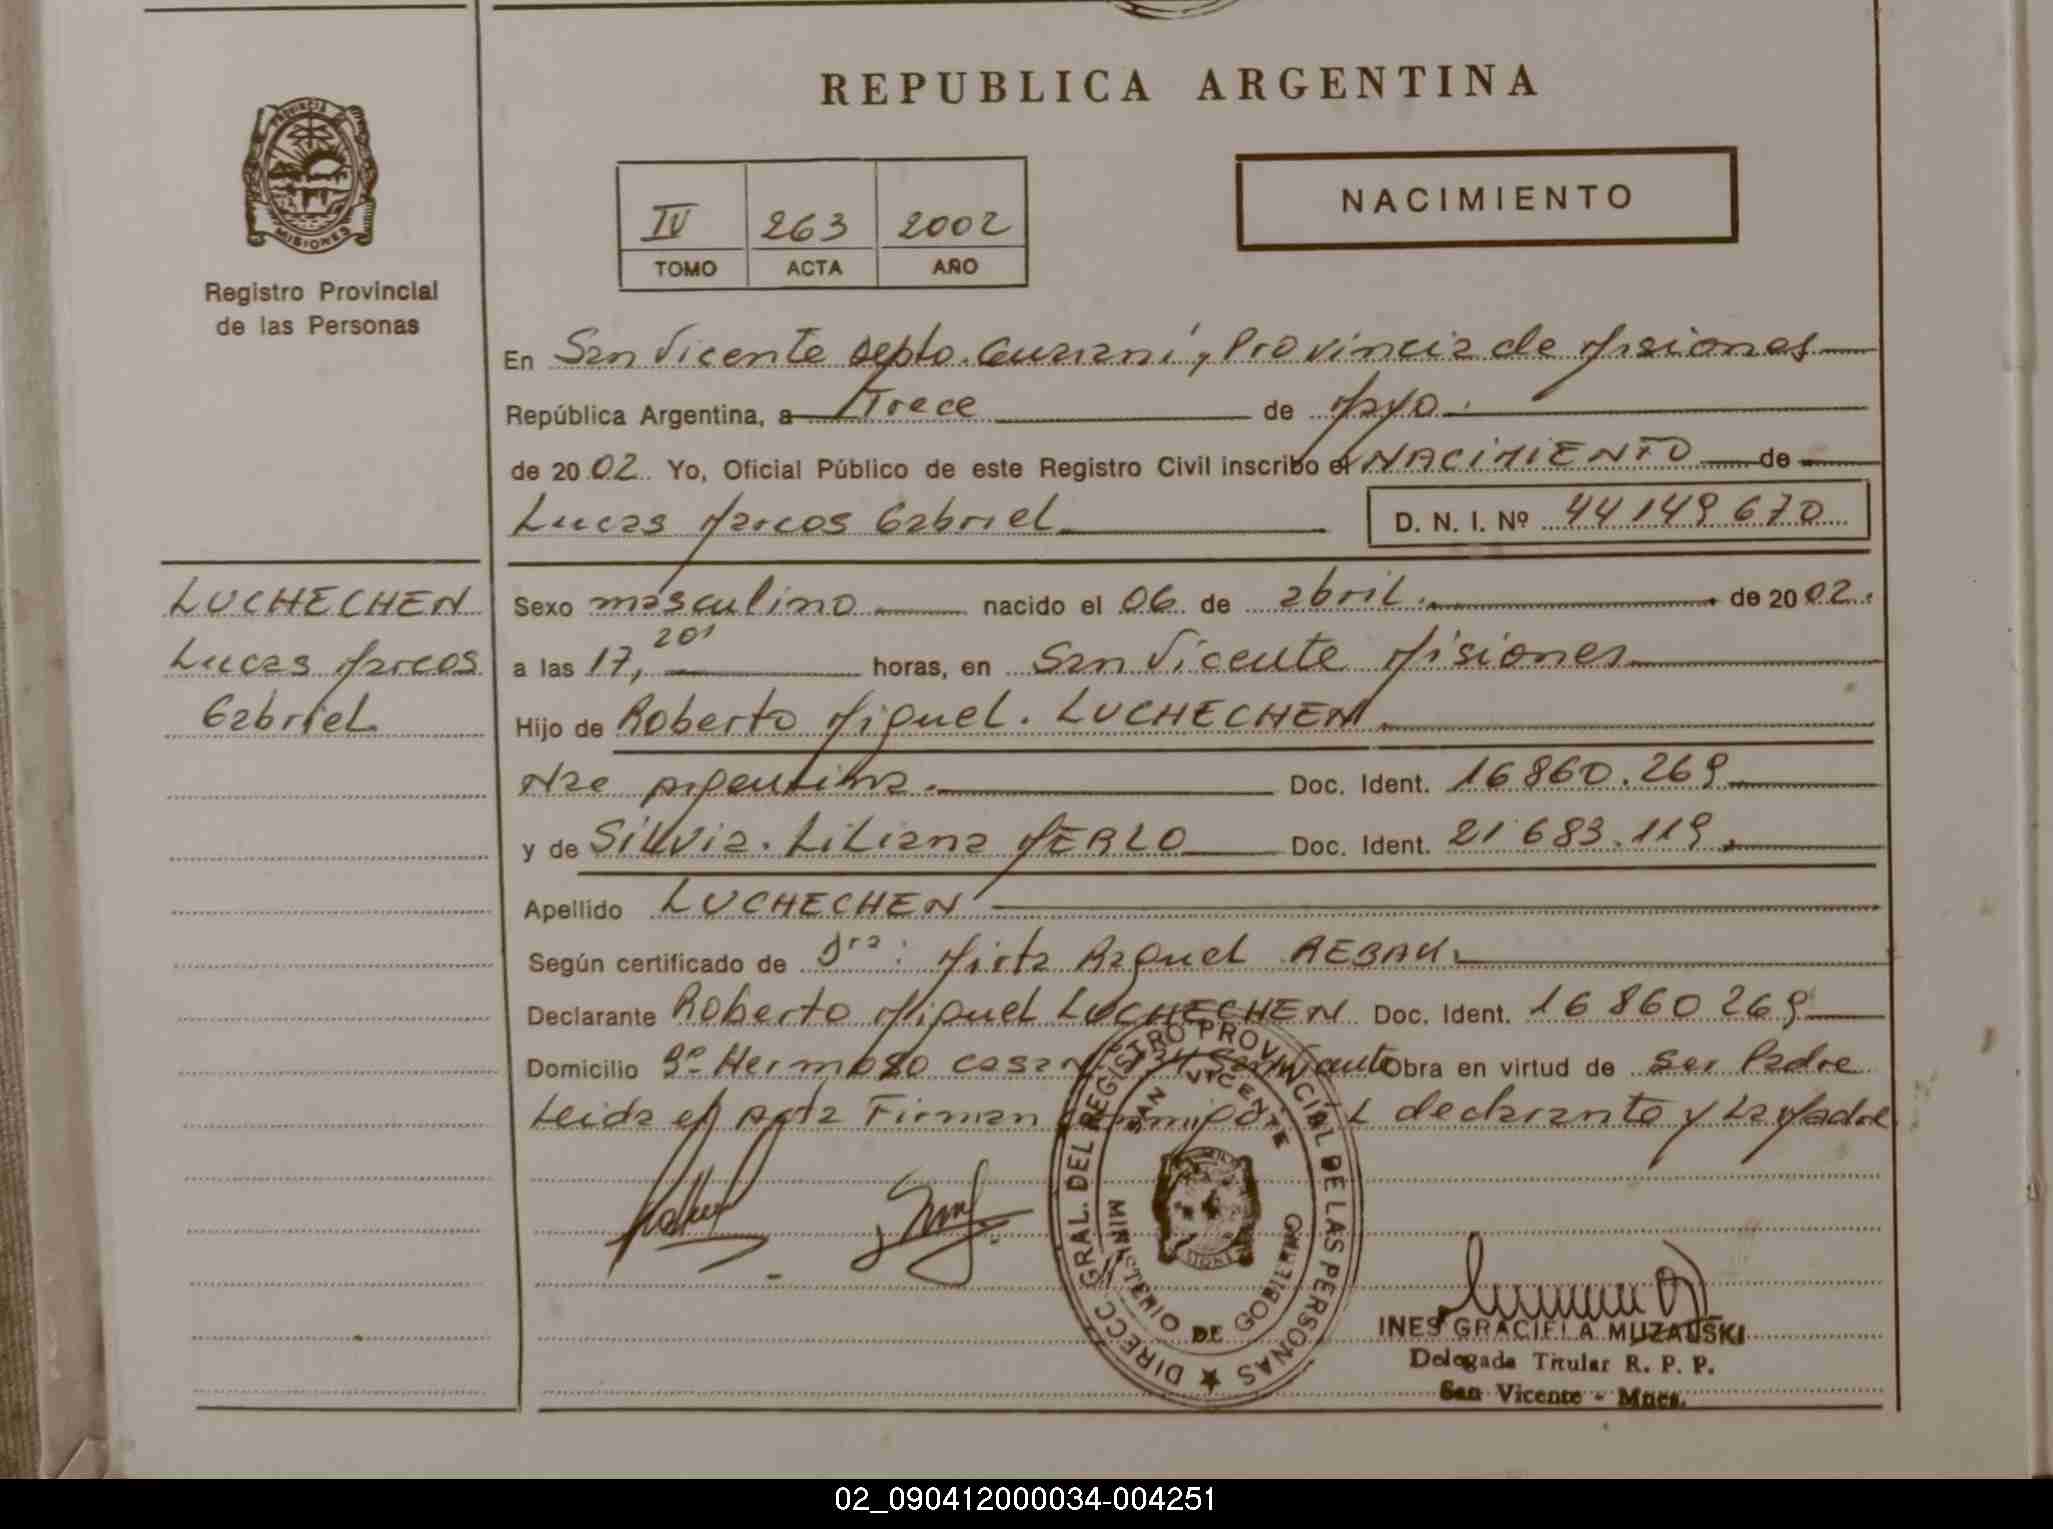 REPUBLICA ARGENTINA
PROVINCIA DE MISIONES
Registro Provincial
de las Personas
IV 263 2002
TOMO ACTA AÑO
NACIMIENTO
En San Vicente Depto. Guarani, Provincia de Misiones
República Argentina, a Trece de Mayo.
de 2002. Yo, Oficial Público de este Registro Civil inscribo el NACIMIENTO de
Lucas Marcos Gabriel D. N. I. Nº 44149670
LUCHECHEN
Lucas Marcos
Gabriel
Sexo masculino nacido el 06 de abril. de 2002.
a las 17,20' horas, en San Vicente Misiones
Hijo de Roberto Miguel. LUCHECHEN
Nac Argentina. Doc. Ident. 16860.269
y de Silvia. Liliana MERLO Doc. Ident. 21683.119.
Apellido LUCHECHEN
Según certificado de Mirta Raquel
Declarante Roberto Miguel LUCHECHEN Doc. Ident. 16860269
Domicilio Bº Hermoso casa Obra en virtud de ser Padre
Leida el Acta Firman declarante y La Madre
DIRECC. GRAL. DEL REGISTRO PROVINCIAL DE LAS PERSONAS
SAN VICENTE
MINISTERIO DE GOBIERNO
INES GRACIELA MUZALSKI
Delegada Titular R. P. P.
San Vicente - Mnes.
02_090412000034-004251